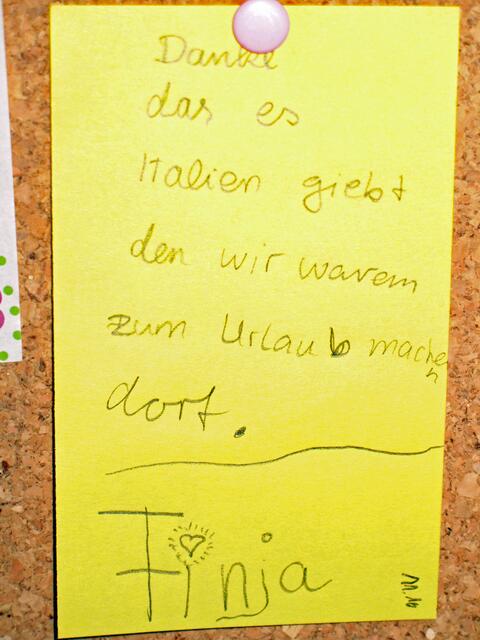 Danke
das es
Italien giebt
den wir waren
zum Urlaub machen
dort.
Finja